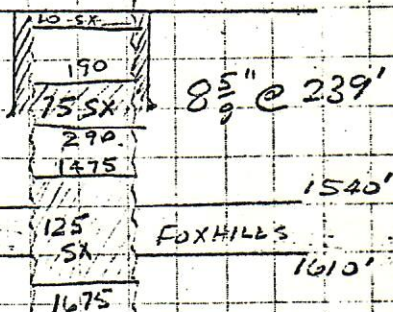 10 SX
190
75 SX
8 5/8" @ 239'
290
1475
1540'
125
SX
FOXHILLS
1610'
1675